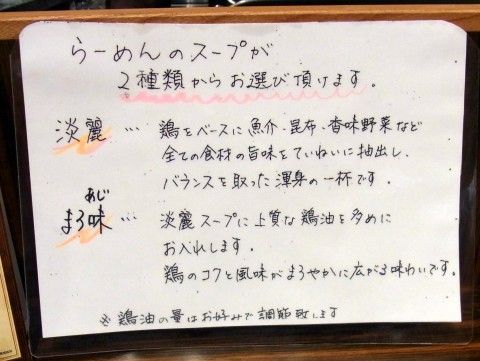 らーめんのスープが
2種類からお選び頂けます。
淡麗 … 鶏をベースに魚介・昆布・香味野菜など
全ての食材の旨味をていねいに抽出し、
バランスを取った渾身の一杯です。
あじ
まろ味 … 淡麗スープに上質な鶏油を多めに
お入れします。
鶏のコクと風味がまろやかに広がる味わいです。
※鶏油の量はお好みで調節致します